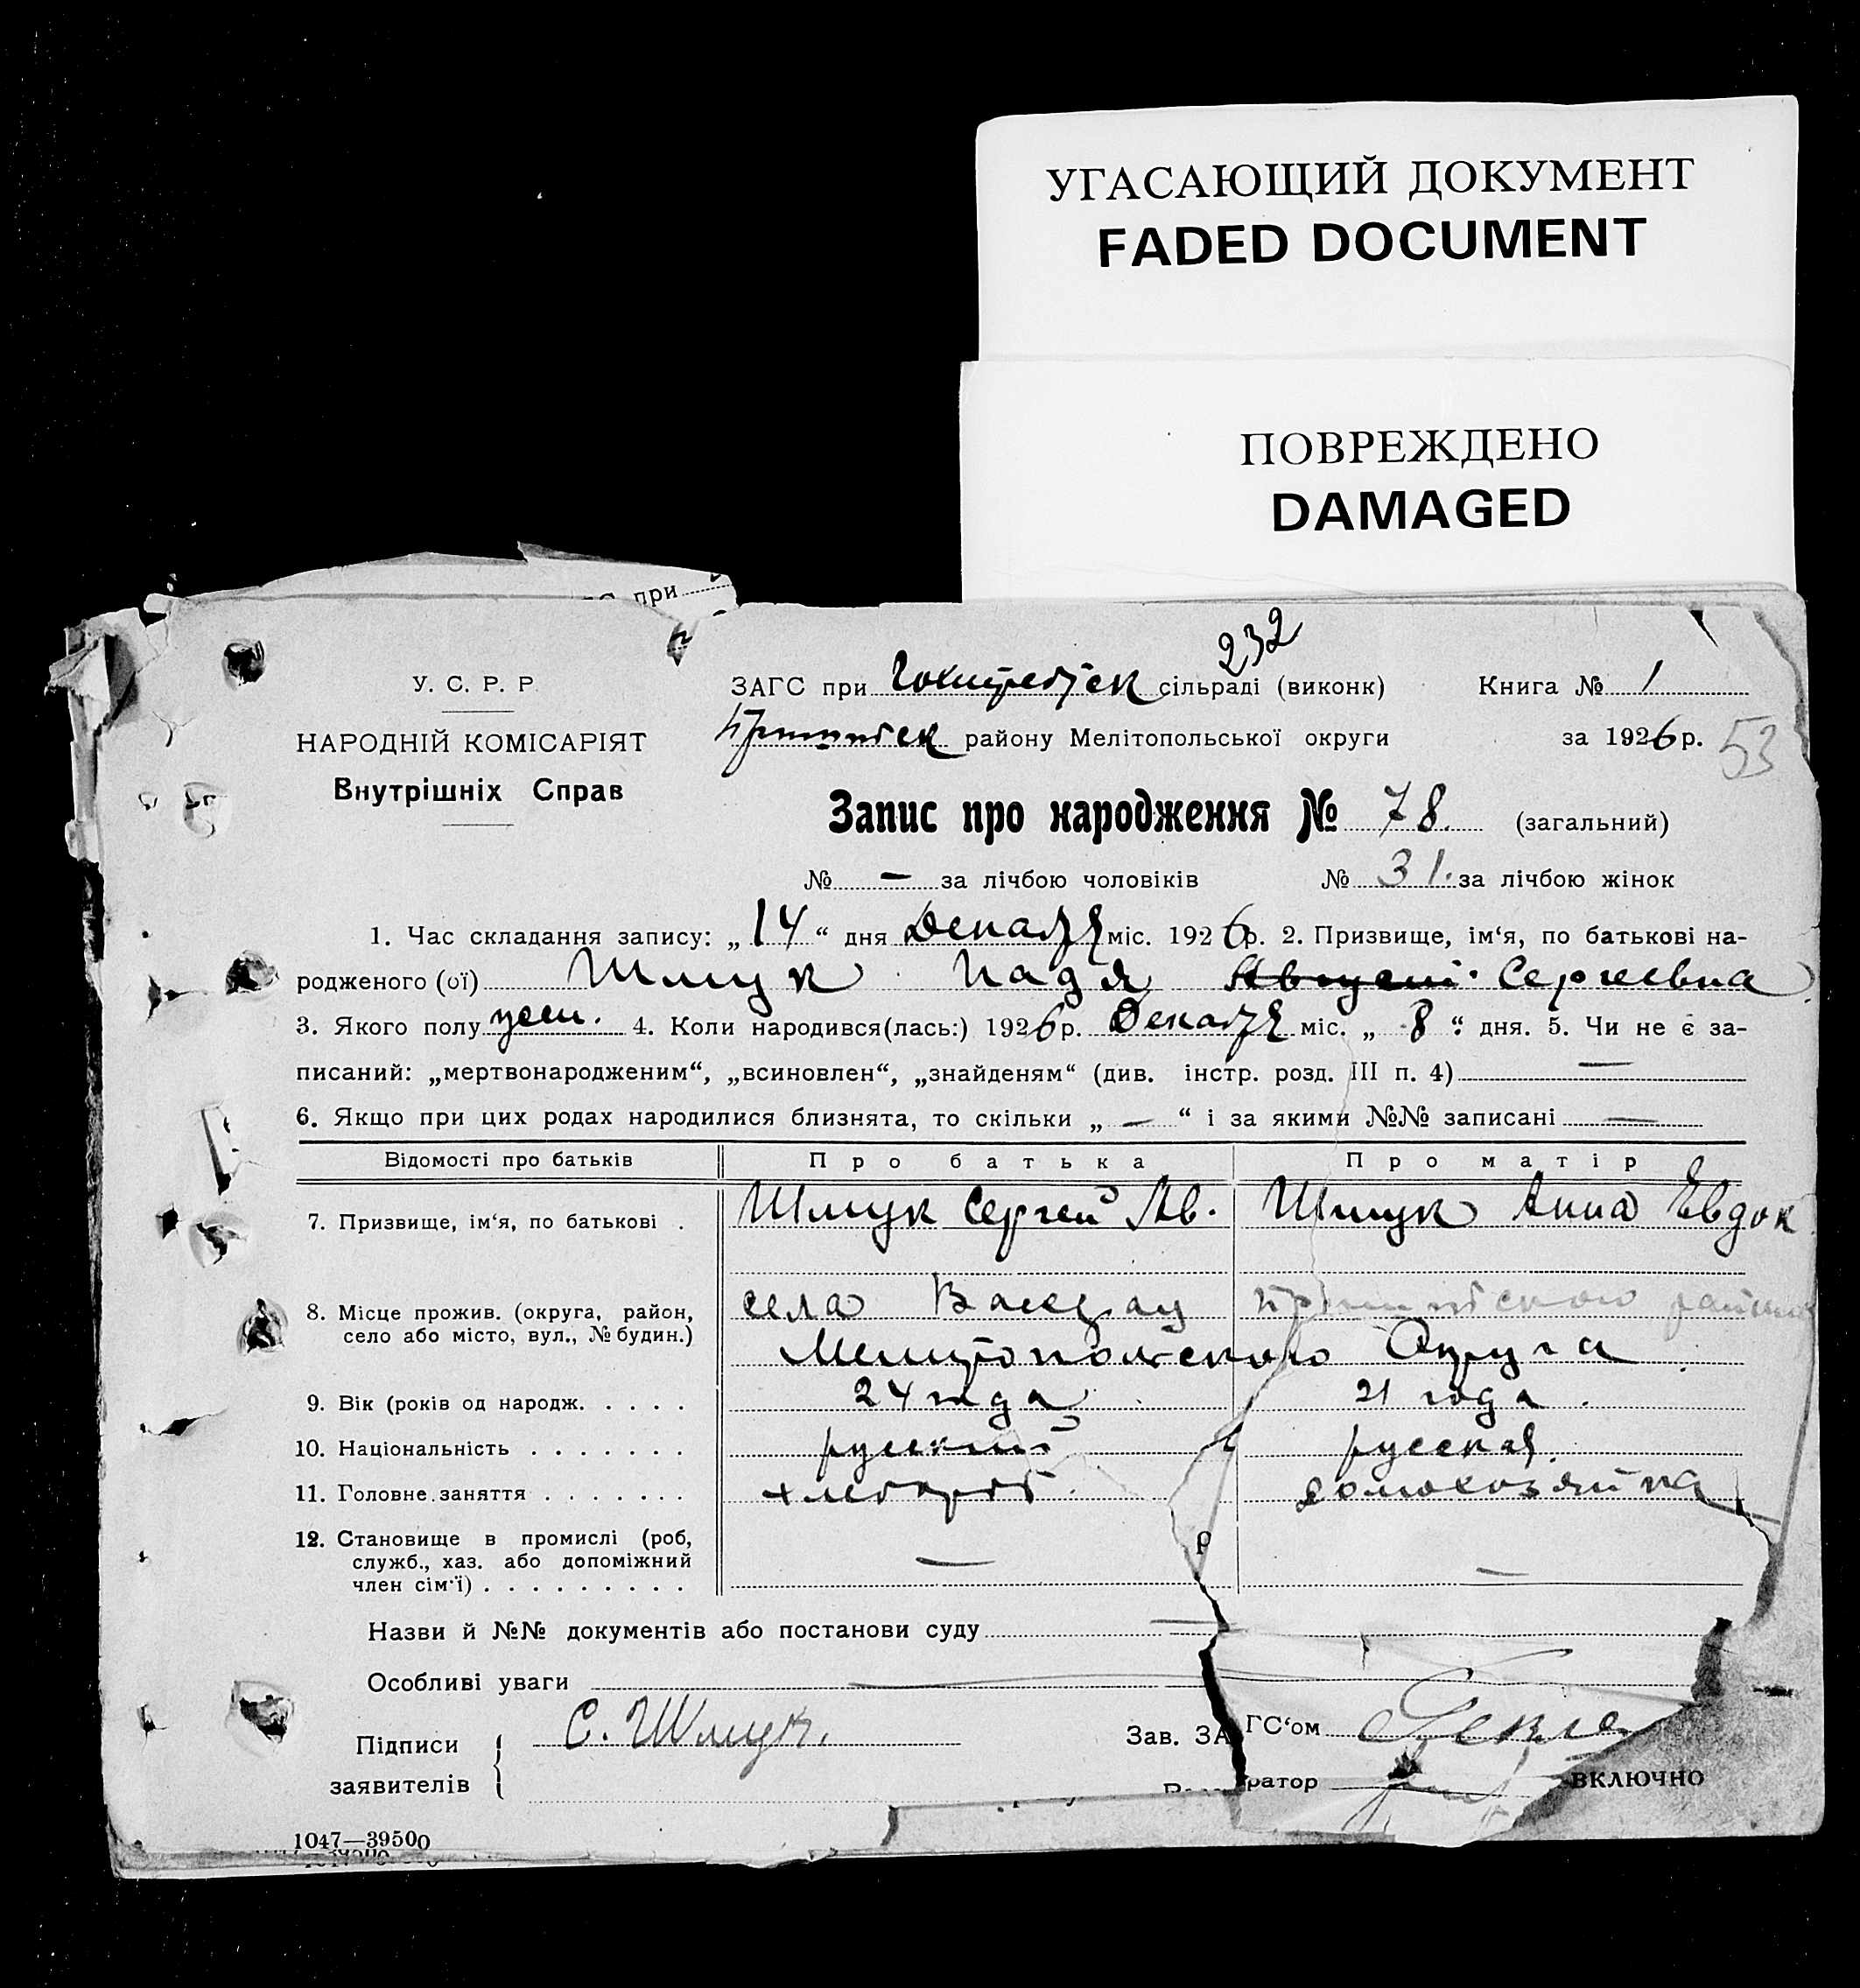 УГАСАЮЩИЙ ДОКУМЕНТ
FADED DOCUMENT
ПОВРЕЖДЕНО
DAMAGED
при
232
У. С. Р. Р.
НАРОДНІЙ КОМІСАРІЯТ
Внутрішніх Справ
ЗАГС при сільраді (виконк) Книга № 1
району Мелітопольської округи за 1926 р. 53
Запис про народження № 78. (загальний)
№ — за лічбою чоловіків № 31. за лічбою жінок
1. Час складання запису: „14“ дня Декабря міс. 1926 р. 2. Призвище, ім‘я, по батькові на-
родженого (ої) Шмук Надя Сергеевна
3. Якого полу жен. 4. Коли народився(лась:) 1926 р. Декабря міс. „8“ дня. 5. Чи не є за-
писаний: „мертвонародженим“, „всиновлен“, „знайденям“ (див. інстр. розд. III п. 4) —
6. Якщо при цих родах народилися близнята, то скільки „—“ і за якими №№ записані —
Відомості про батьків Про батька Про матір
7. Призвище, ім‘я, по батькові . Шмук Сергей Ав. Шмук Анна Евдок
8. Місце прожив. (округа, район, село або місто, вул., № будин.) села района
Мелитопольского Округа
9. Вік (років од народж. . . . . 24 года 21 года.
10. Національність . . . . . . . русский русская
11. Головне заняття . . . . . . . хлебороб. домохозяйка
12. Становище в промислі (роб, служб., хаз. або допоміжний член сім‘ї) . . . . . . . . . — —
Назви й №№ документів або постанови суду —
Особливі уваги —
Підписи заявителів С. Шмук.
Зав. ЗАГС‘ом
ратор
ВКЛЮЧНО
1047—39500